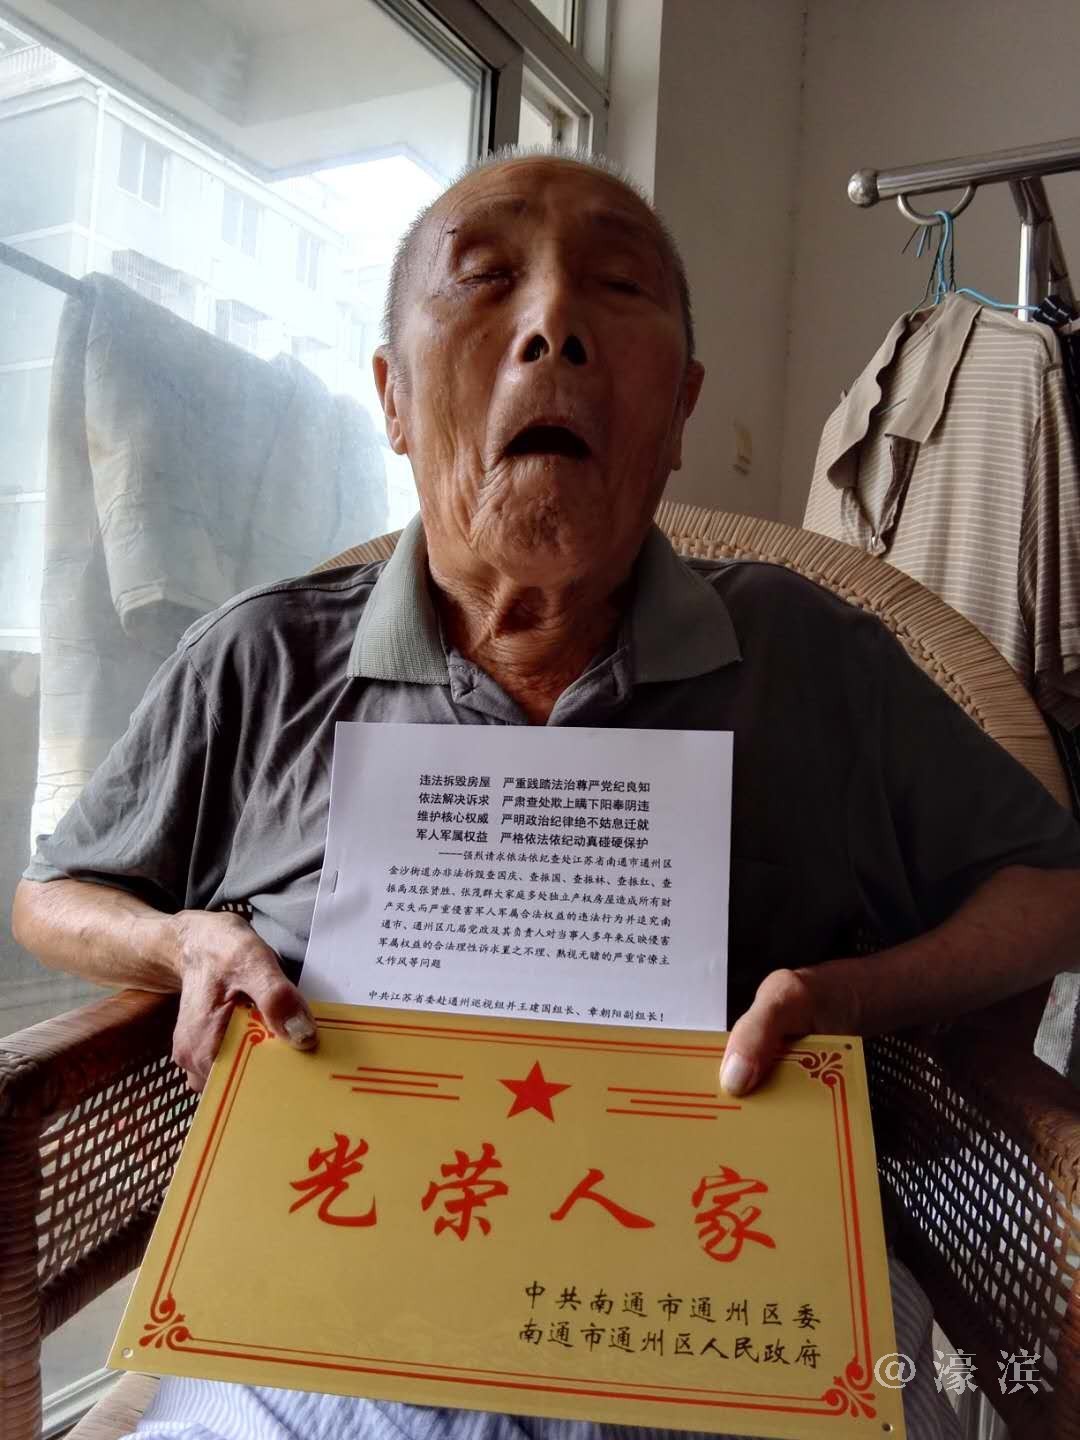 违法拆毁房屋　严重践踏法治尊严党纪良知
依法解决诉求　严肃查处欺上瞒下阳奉阴违
维护核心权威　严明政治纪律绝不姑息迁就
军人军属权益　严格依法依纪动真碰硬保护
----强烈请求依法依纪查处江苏省南通市通州区
金沙街道办非法拆毁查国庆、查振国、查振林、查振红、查
振禹及张贤胜、张茂群大家庭多处独立产权房屋造成所有财
产灭失而严重侵害军人军属合法权益的违法行为并追究南
通市、通州区几届党政及其负责人对当事人多年来反映侵害
军属权益的合法理性诉求置之不理、熟视无睹的严重官僚主
义作风等问题
中共江苏省委赴通州巡视组并王建国组长、章朝阳副组长！
光荣人家
中共南通市通州区委
南通市通州区人民政府
@濠滨